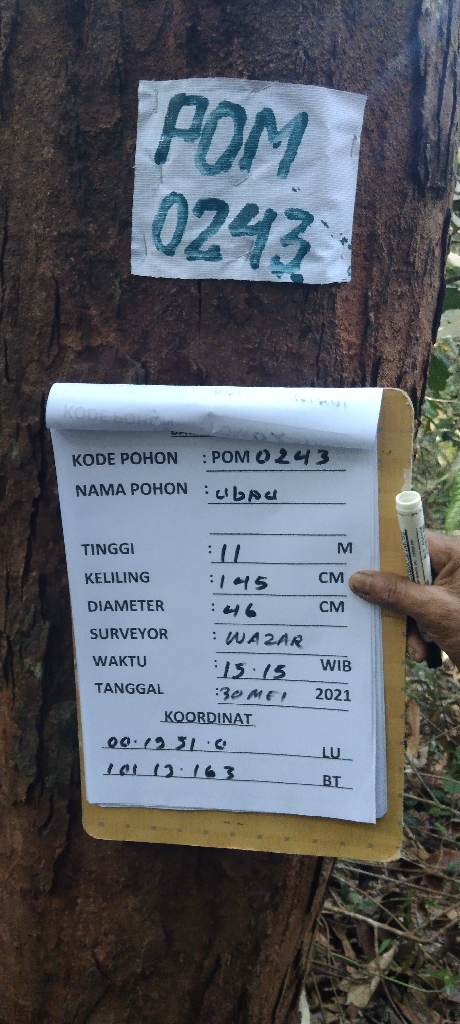 POM
0243
KODE POHON : POM 0243
NAMA POHON : UBAU
TINGGI : 11 M
KELILING : 145 CM
DIAMETER : 46 CM
SURVEYOR : WAZAR
WAKTU : 15.15 WIB
TANGGAL : 30 MEI 2021
KOORDINAT
LU
BT